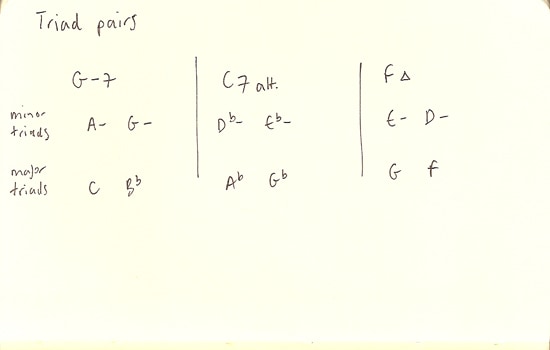 Triad pairs
G-7 C7 alt. F△
minor triads A- G- Db- Eb- E- D-
major triads C Bb Ab Gb G F